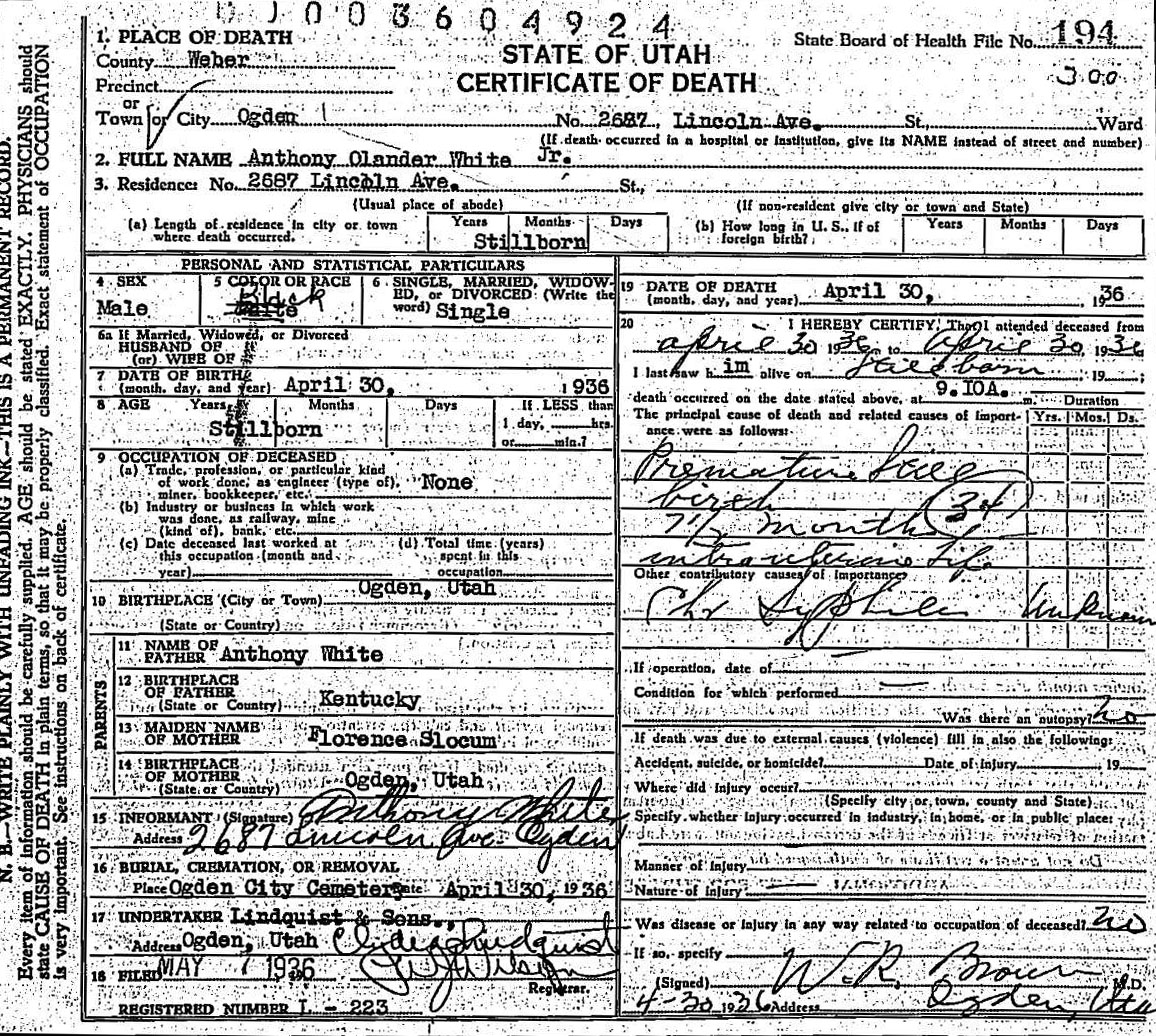 D J 0 0 3 6 0 4 9 2 4
N. B.—WRITE PLAINLY WITH UNFADING INK—THIS IS A PERMANENT RECORD.
Every item of information should be carefully supplied. AGE should be stated EXACTLY. PHYSICIANS should
state CAUSE OF DEATH in plain terms, so that it may be properly classified. Exact statement of OCCUPATION
is very important. See instructions on back of certificate.
1. PLACE OF DEATH
County Weber
Precinct
or
Town or City Ogden No. 2687 Lincoln Ave. St. Ward
STATE OF UTAH
CERTIFICATE OF DEATH
State Board of Health File No. 194
300
(If death occurred in a hospital or institution, give its NAME instead of street and number)
2. FULL NAME Anthony Olander White Jr.
3. Residence: No. 2687 Lincoln Ave. St.,
(Usual place of abode) (If non-resident give city or town and State)
(a) Length of residence in city or town where death occurred. Years Months Days
Stillborn
(b) How long in U. S., if of foreign birth? Years Months Days
PERSONAL AND STATISTICAL PARTICULARS
4 SEX
Male
5 COLOR OR RACE
Black
White
6 SINGLE, MARRIED, WIDOWED, or DIVORCED (Write the word) Single
6a If Married, Widowed, or Divorced
HUSBAND OF
(or) WIFE OF
7 DATE OF BIRTH
(month, day, and year) April 30, 1936
8 AGE Years Months Days If LESS than
1 day, hrs.
or min.?
Stillborn
9 OCCUPATION OF DECEASED
(a) Trade, profession, or particular kind
of work done, as engineer (type of), None
miner, bookkeeper, etc.
(b) Industry or business in which work
was done, as railway, mine
(kind of), bank, etc.
(c) Date deceased last worked at
this occupation (month and
year)
(d) Total time (years)
spent in this
occupation
10 BIRTHPLACE (City or Town) Ogden, Utah
(State or Country)
PARENTS
11 NAME OF
FATHER Anthony White
12 BIRTHPLACE
OF FATHER
(State or Country) Kentucky
13 MAIDEN NAME
OF MOTHER Florence Slocum
14 BIRTHPLACE
OF MOTHER
(State or Country) Ogden, Utah
15 INFORMANT (Signature) Anthony White
Address 2687 Lincoln Ave. Ogden
16 BURIAL, CREMATION, OR REMOVAL
Place Ogden City Cemetery Date April 30, 1936
17 UNDERTAKER Lindquist & Sons.
Address Ogden, Utah Clyde Lindquist
18 FILED MAY 7 1936
Registrar.
REGISTERED NUMBER L - 223
19 DATE OF DEATH
(month, day, and year) April 30, 1936
20 I HEREBY CERTIFY, That I attended deceased from
April 30 1936 to April 30, 1936
I last saw him alive on Stillborn 19 ;
death occurred on the date stated above, at 9.10A. m. Duration
The principal cause of death and related causes of importance were as follows: Yrs. Mos. Ds.
Premature Still
birth (34)
7 1/2 months
intrauterine life
Other contributory causes of importance
Chr Syphilis Unknown
If operation, date of
Condition for which performed
Was there an autopsy? no
If death was due to external causes (violence) fill in also the following:
Accident, suicide, or homicide? Date of injury 19
Where did injury occur?
(Specify city or town, county and State)
Specify whether injury occurred in industry, in home, or in public place:
Manner of injury
Nature of injury
Was disease or injury in any way related to occupation of deceased? no
If so, specify
(Signed) W. R. Brown M.D.
4-30 1936 Address Ogden, Utah